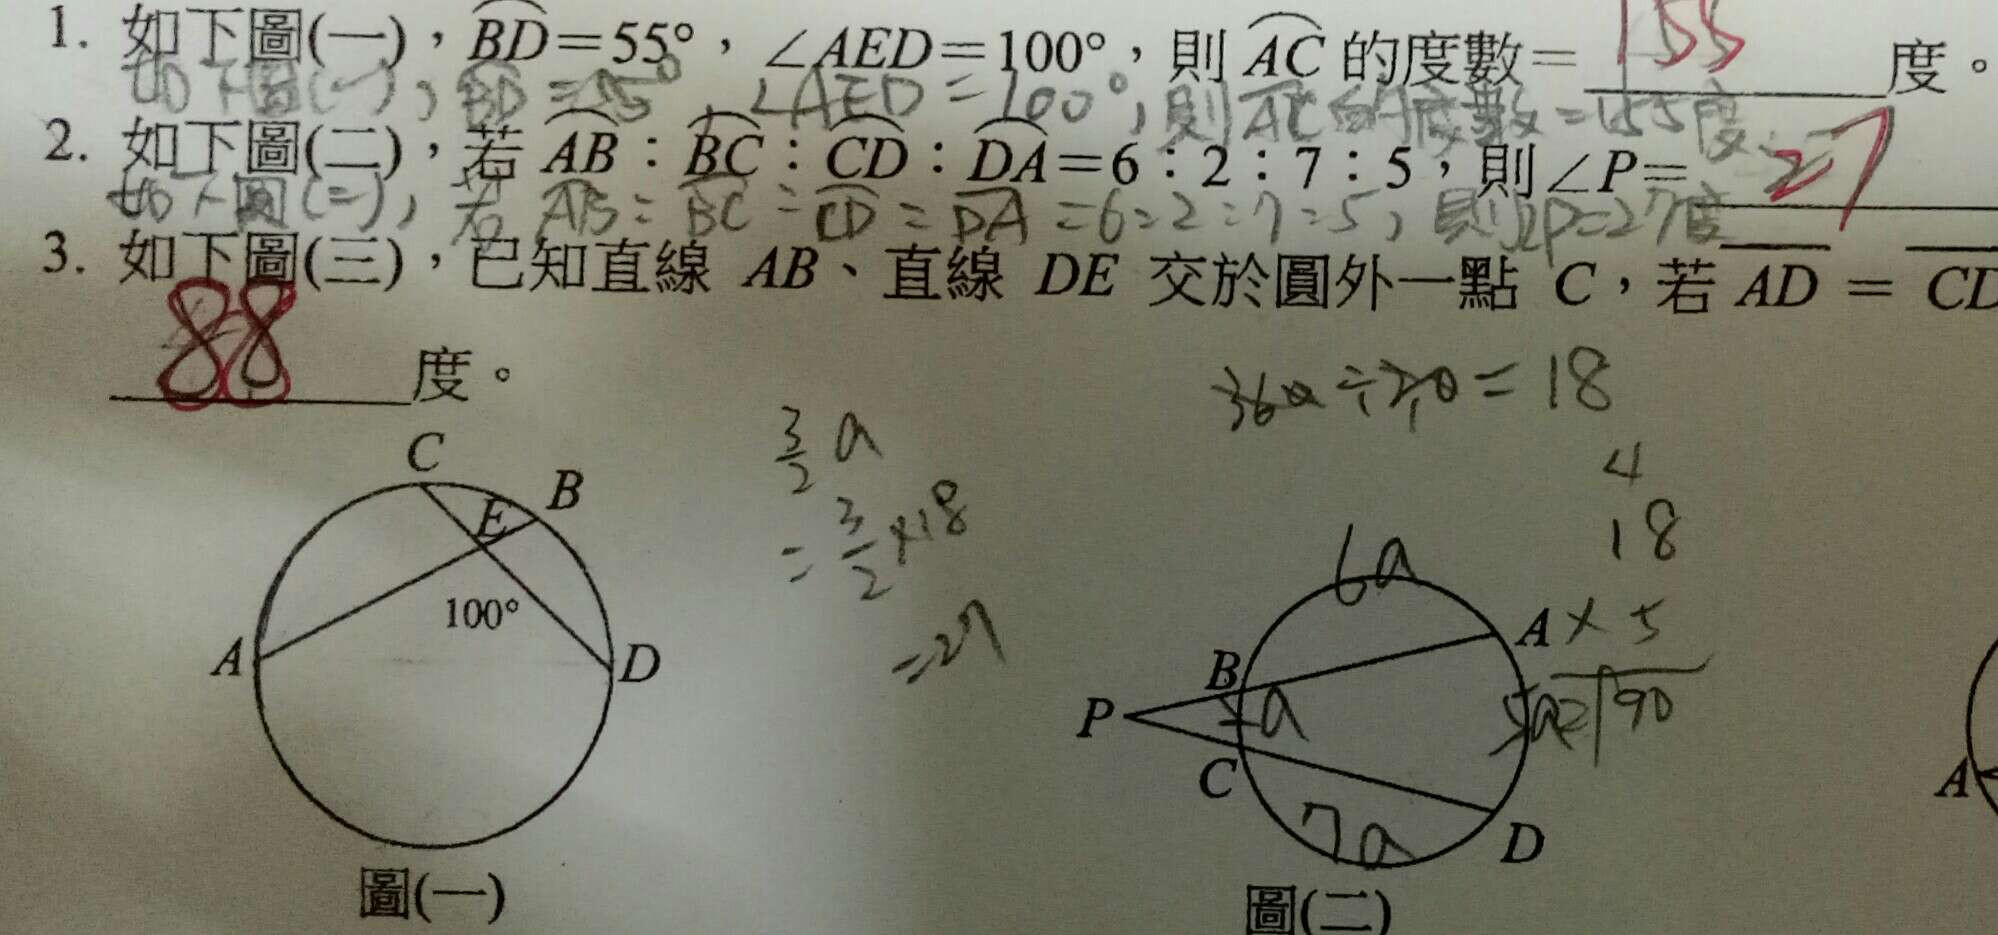 1. 如下圖(一)，BD=55°，∠AED=100°，則 AC 的度數= 155 度。
如下圖(一)，BD=55°，∠AED=100°，則AC的度數=155度
2. 如下圖(二)，若 AB：BC：CD：DA=6：2：7：5，則∠P= 27
如下圖(二)，若 AB：BC：CD：DA=6：2：7：5，則∠P=27度
3. 如下圖(三)，已知直線 AB、直線 DE 交於圓外一點 C，若 AD = CD
88 度。
360÷20=18
3/2 a
=3/2×18
=27
4
18
× 5
90
C
E
B
100°
A
D
圖(一)
6a
A
B
P
2a
5a=
C
7a
D
圖(二)
A